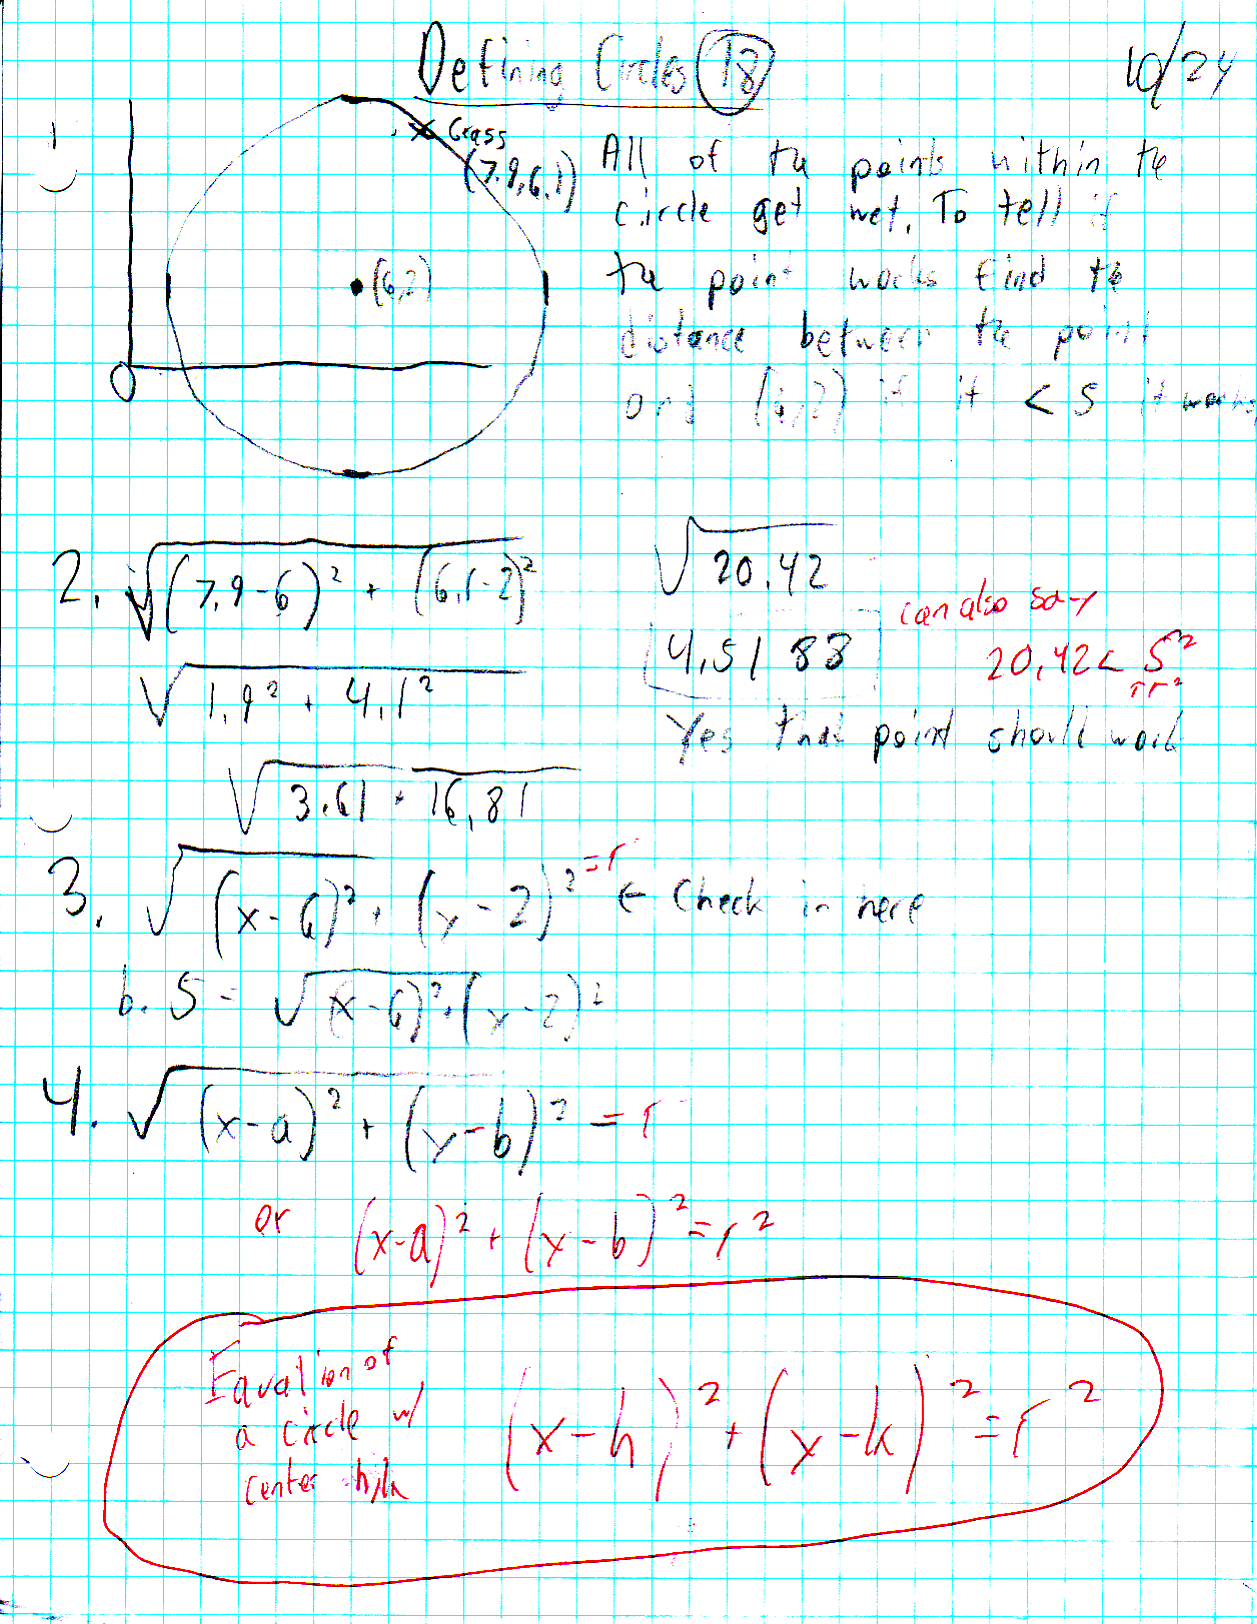 Defining Circles 18
10/24
1
x Grass
(7.9,6.1)
(6,2)
O
All of the points within the
circle get wet. To tell if
the point works find the
distance between the point
and (6,2) if it < 5 it works
2. √(7.9-6)² + (6.1-2)²
√1.9² + 4.1²
√3.61 + 16.81
√20.42
4.5188
can also say
20.42 < 5²
πr²
Yes that point should work
3. √(x-6)² + (y-2)² = r ← Check in here
b. 5 = √(x-6)² + (y-2)²
4. √(x-a)² + (y-b)² = r
or (x-a)² + (y-b)² = r²
Equation of
a circle w/
center h,k
(x-h)² + (y-k)² = r²